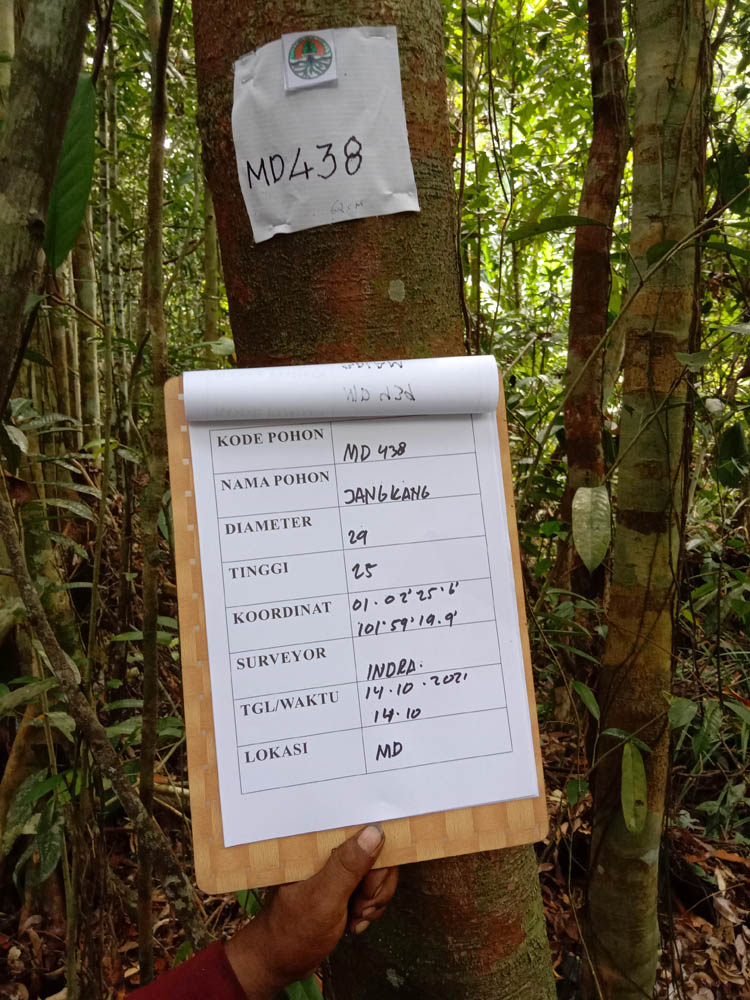 MD438
KODE POHON MD 438
NAMA POHON JANGKANG
DIAMETER 29
TINGGI 25
KOORDINAT 01·02'25·6'
101°59'19.9'
SURVEYOR INDRA.
TGL/WAKTU 14·10·2021
14·10
LOKASI MD